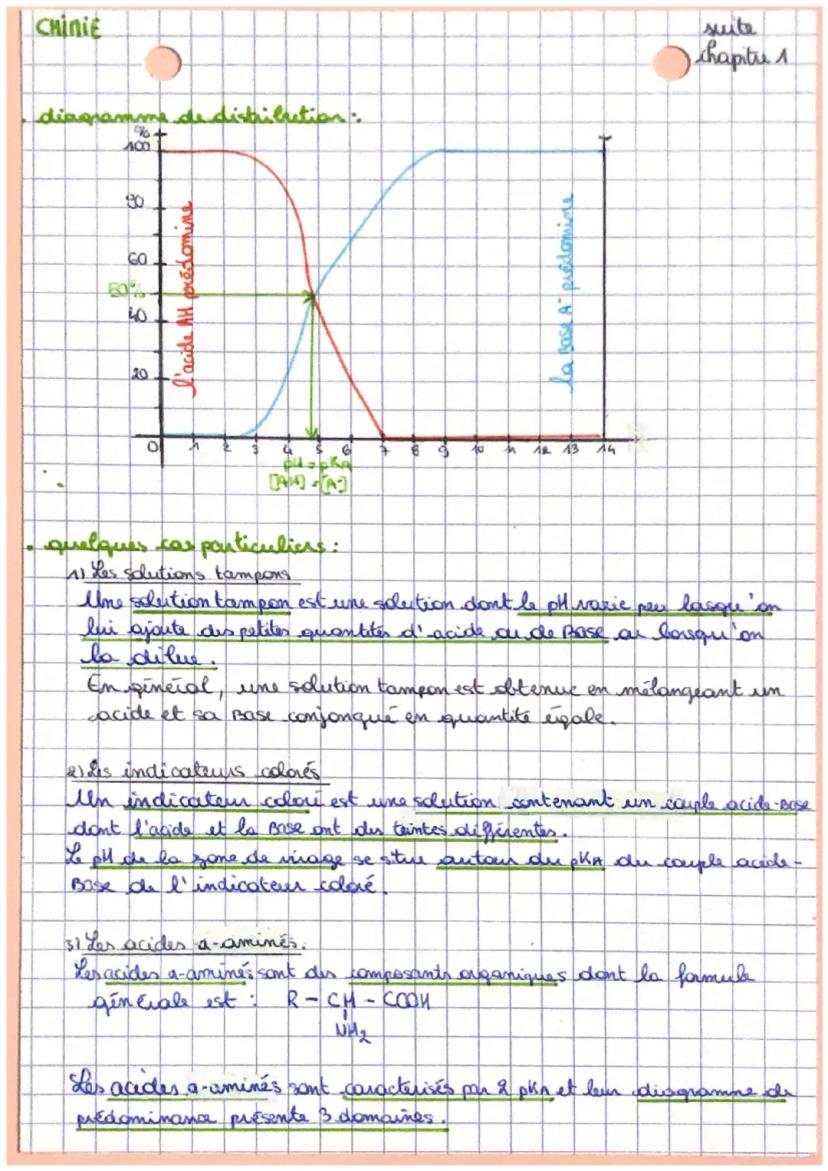 CHIMIE
suite
chapitre 1
• diagramme de distribution :
%
100
90
60
50%
40
20
l'acide AH prédomine
la Base A⁻ prédomine
0 1 2 3 4 5 6 7 8 9 10 11 12 13 14
pH = pKA
[AH] = [A⁻]
• quelques cas particuliers :
1) Les solutions tampons
Une solution tampon est une solution dont le pH varie peu lorsqu'on
lui ajoute des petites quantités d'acide ou de Base ou lorsqu'on
la dilue.
En général, une solution tampon est obtenue en mélangeant un
acide et sa Base conjonqué en quantité égale.
2) Les indicateurs colorés
Un indicateur coloré est une solution contenant un couple acide-Base
dont l'acide et la Base ont des teintes différentes.
Le pH de la zone de virage se situe autour du pKA du couple acide-
Base de l'indicateur coloré.
3) Les acides a-aminés.
Les acides a-aminés sont des composants organiques dont la formule
générale est : R - CH - COOH
NH₂
Les acides a-aminés sont caractérisés par 2 pKA et leur diagramme de
prédominance présente 3 domaines.